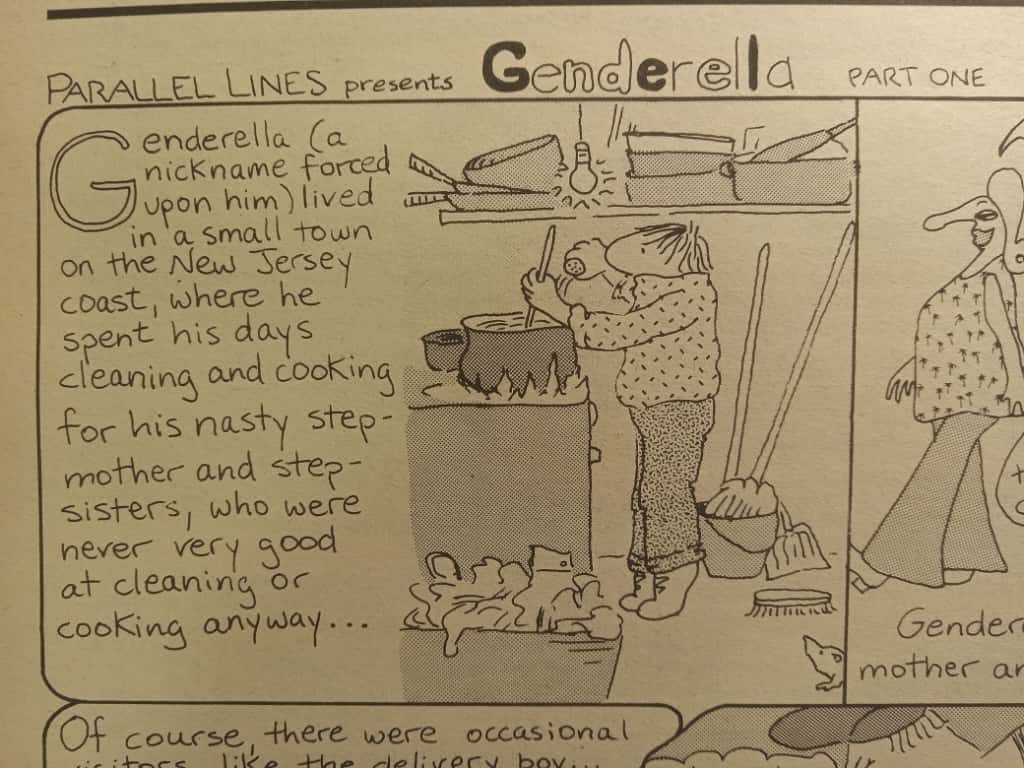 PARALLEL LINES presents Genderella PART ONE
Genderella (a
nickname forced
upon him) lived
in a small town
on the New Jersey
coast, where he
spent his days
cleaning and cooking
for his nasty step-
mother and step-
sisters, who were
never very good
at cleaning or
cooking anyway...
Gender
mother an
Of course, there were occasional
visitors, like the delivery boy...